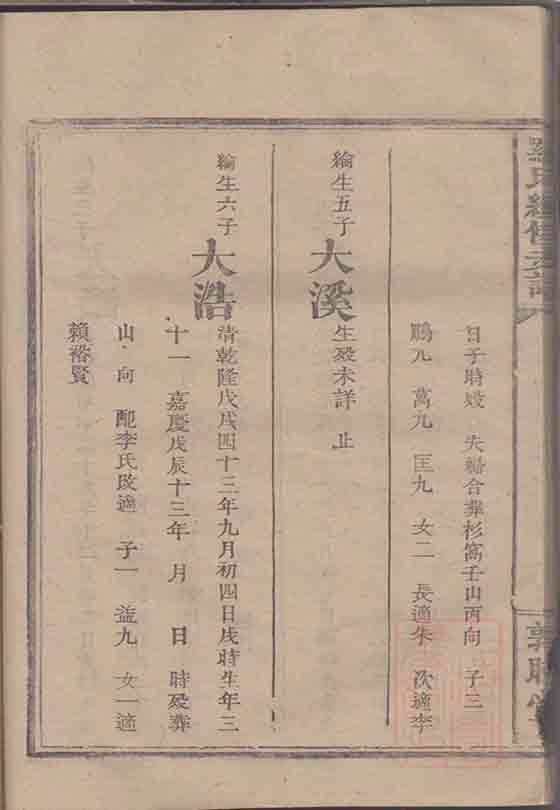 羅氏續修支譜
日子時歿 夫婦合葬杉窩壬山丙向 子三
鵬九 萬九 匡九 女二 長適朱 次適李
綸生五子 大溪 生歿未詳 止
綸生六子 大浩 清乾隆戊戌四十三年九月初四日戌時生年三
十一 嘉慶戊辰十三年 月 日 時歿葬
山 向 配李氏改適 子一 益九 女一適
賴裕賢